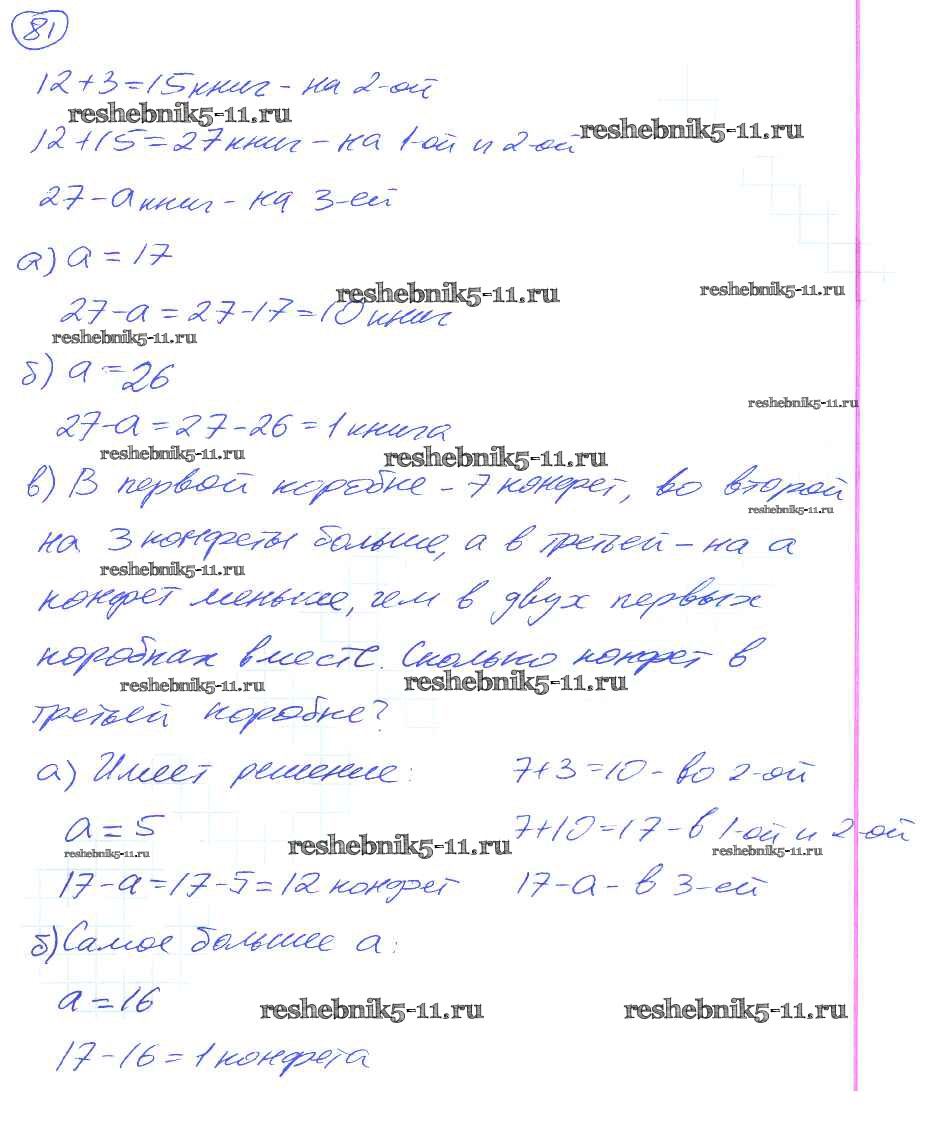 81
12+3=15 книг - на 2-ой
reshebnik5-11.ru
12+15=27 книг - на 1-ой и 2-ой
reshebnik5-11.ru
27-а книг - на 3-ей
а) а = 17
reshebnik5-11.ru
reshebnik5-11.ru
27-а = 27-17=10 книг
reshebnik5-11.ru
б) а = 26
reshebnik5-11.ru
27-а = 27-26=1 книга
reshebnik5-11.ru
reshebnik5-11.ru
в) В первой коробке - 7 конфет, во второй
reshebnik5-11.ru
на 3 конфеты больше, а в третьей - на а
reshebnik5-11.ru
конфет меньше, чем в двух первых
коробках вместе. Сколько конфет в
reshebnik5-11.ru
reshebnik5-11.ru
третьей коробке?
а) Имеет решение: 7+3=10 - во 2-ой
а = 5 7+10=17 - в 1-ой и 2-ой
reshebnik5-11.ru
reshebnik5-11.ru
reshebnik5-11.ru
17-а=17-5=12 конфет 17-а - в 3-ей
б) Самое большее а:
а = 16
reshebnik5-11.ru
reshebnik5-11.ru
17-16=1 конфета